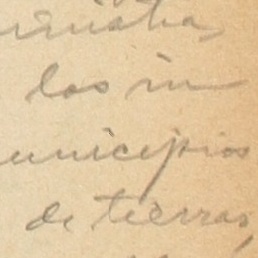 los in
unicipios
de tierras,